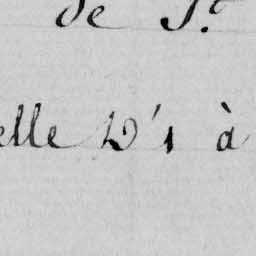 de S.t
elle D'1 à